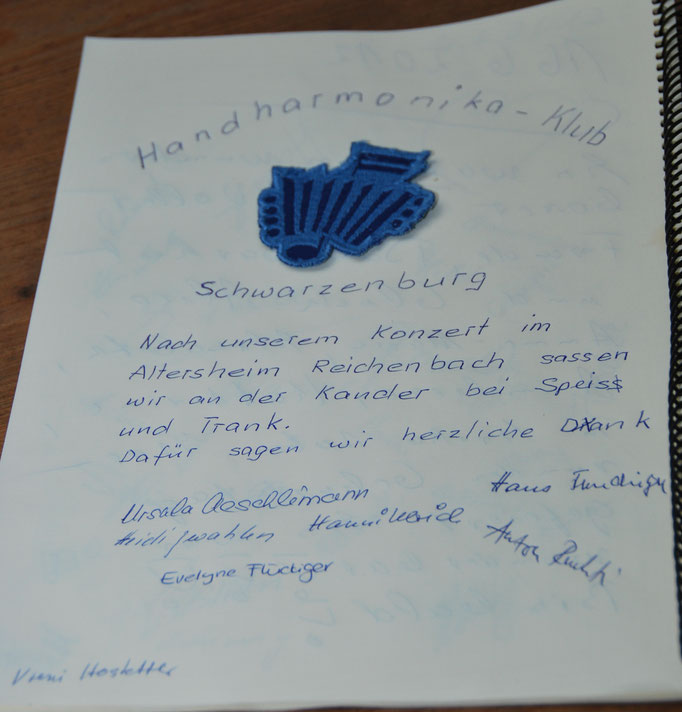 Handharmonika-Klub
Schwarzenburg
Nach unserem Konzert im
Altersheim Reichenbach sassen
wir an der Kander bei Speis
und Trank.
Dafür sagen wir herzliche Dank
Ursula Aeschlimann Hans
Heidi Hanni
Anton
Evelyne Flückiger
Vreni Hostetter